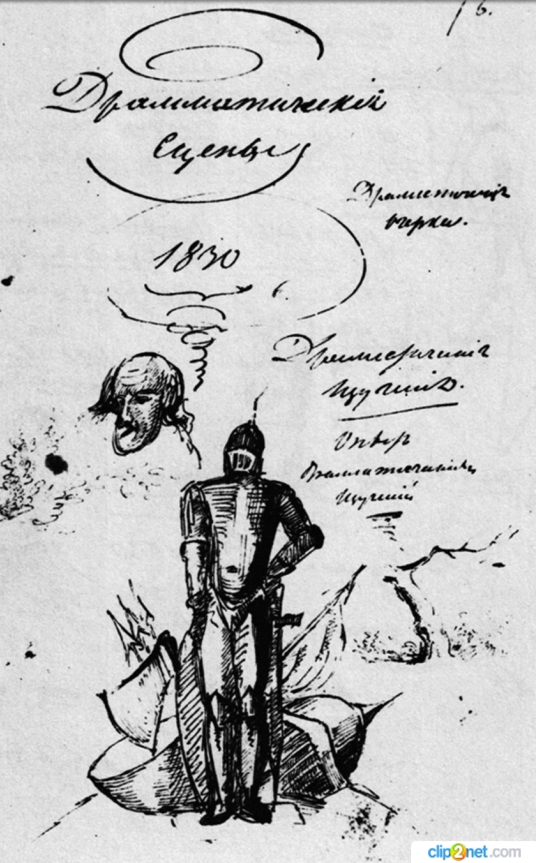 Драмматическія
Сцены
Драматическіе
очерки.
1830
Драмматическія
Изученія.
Опыт
Драмматическихъ
Изученій
clip2net.com